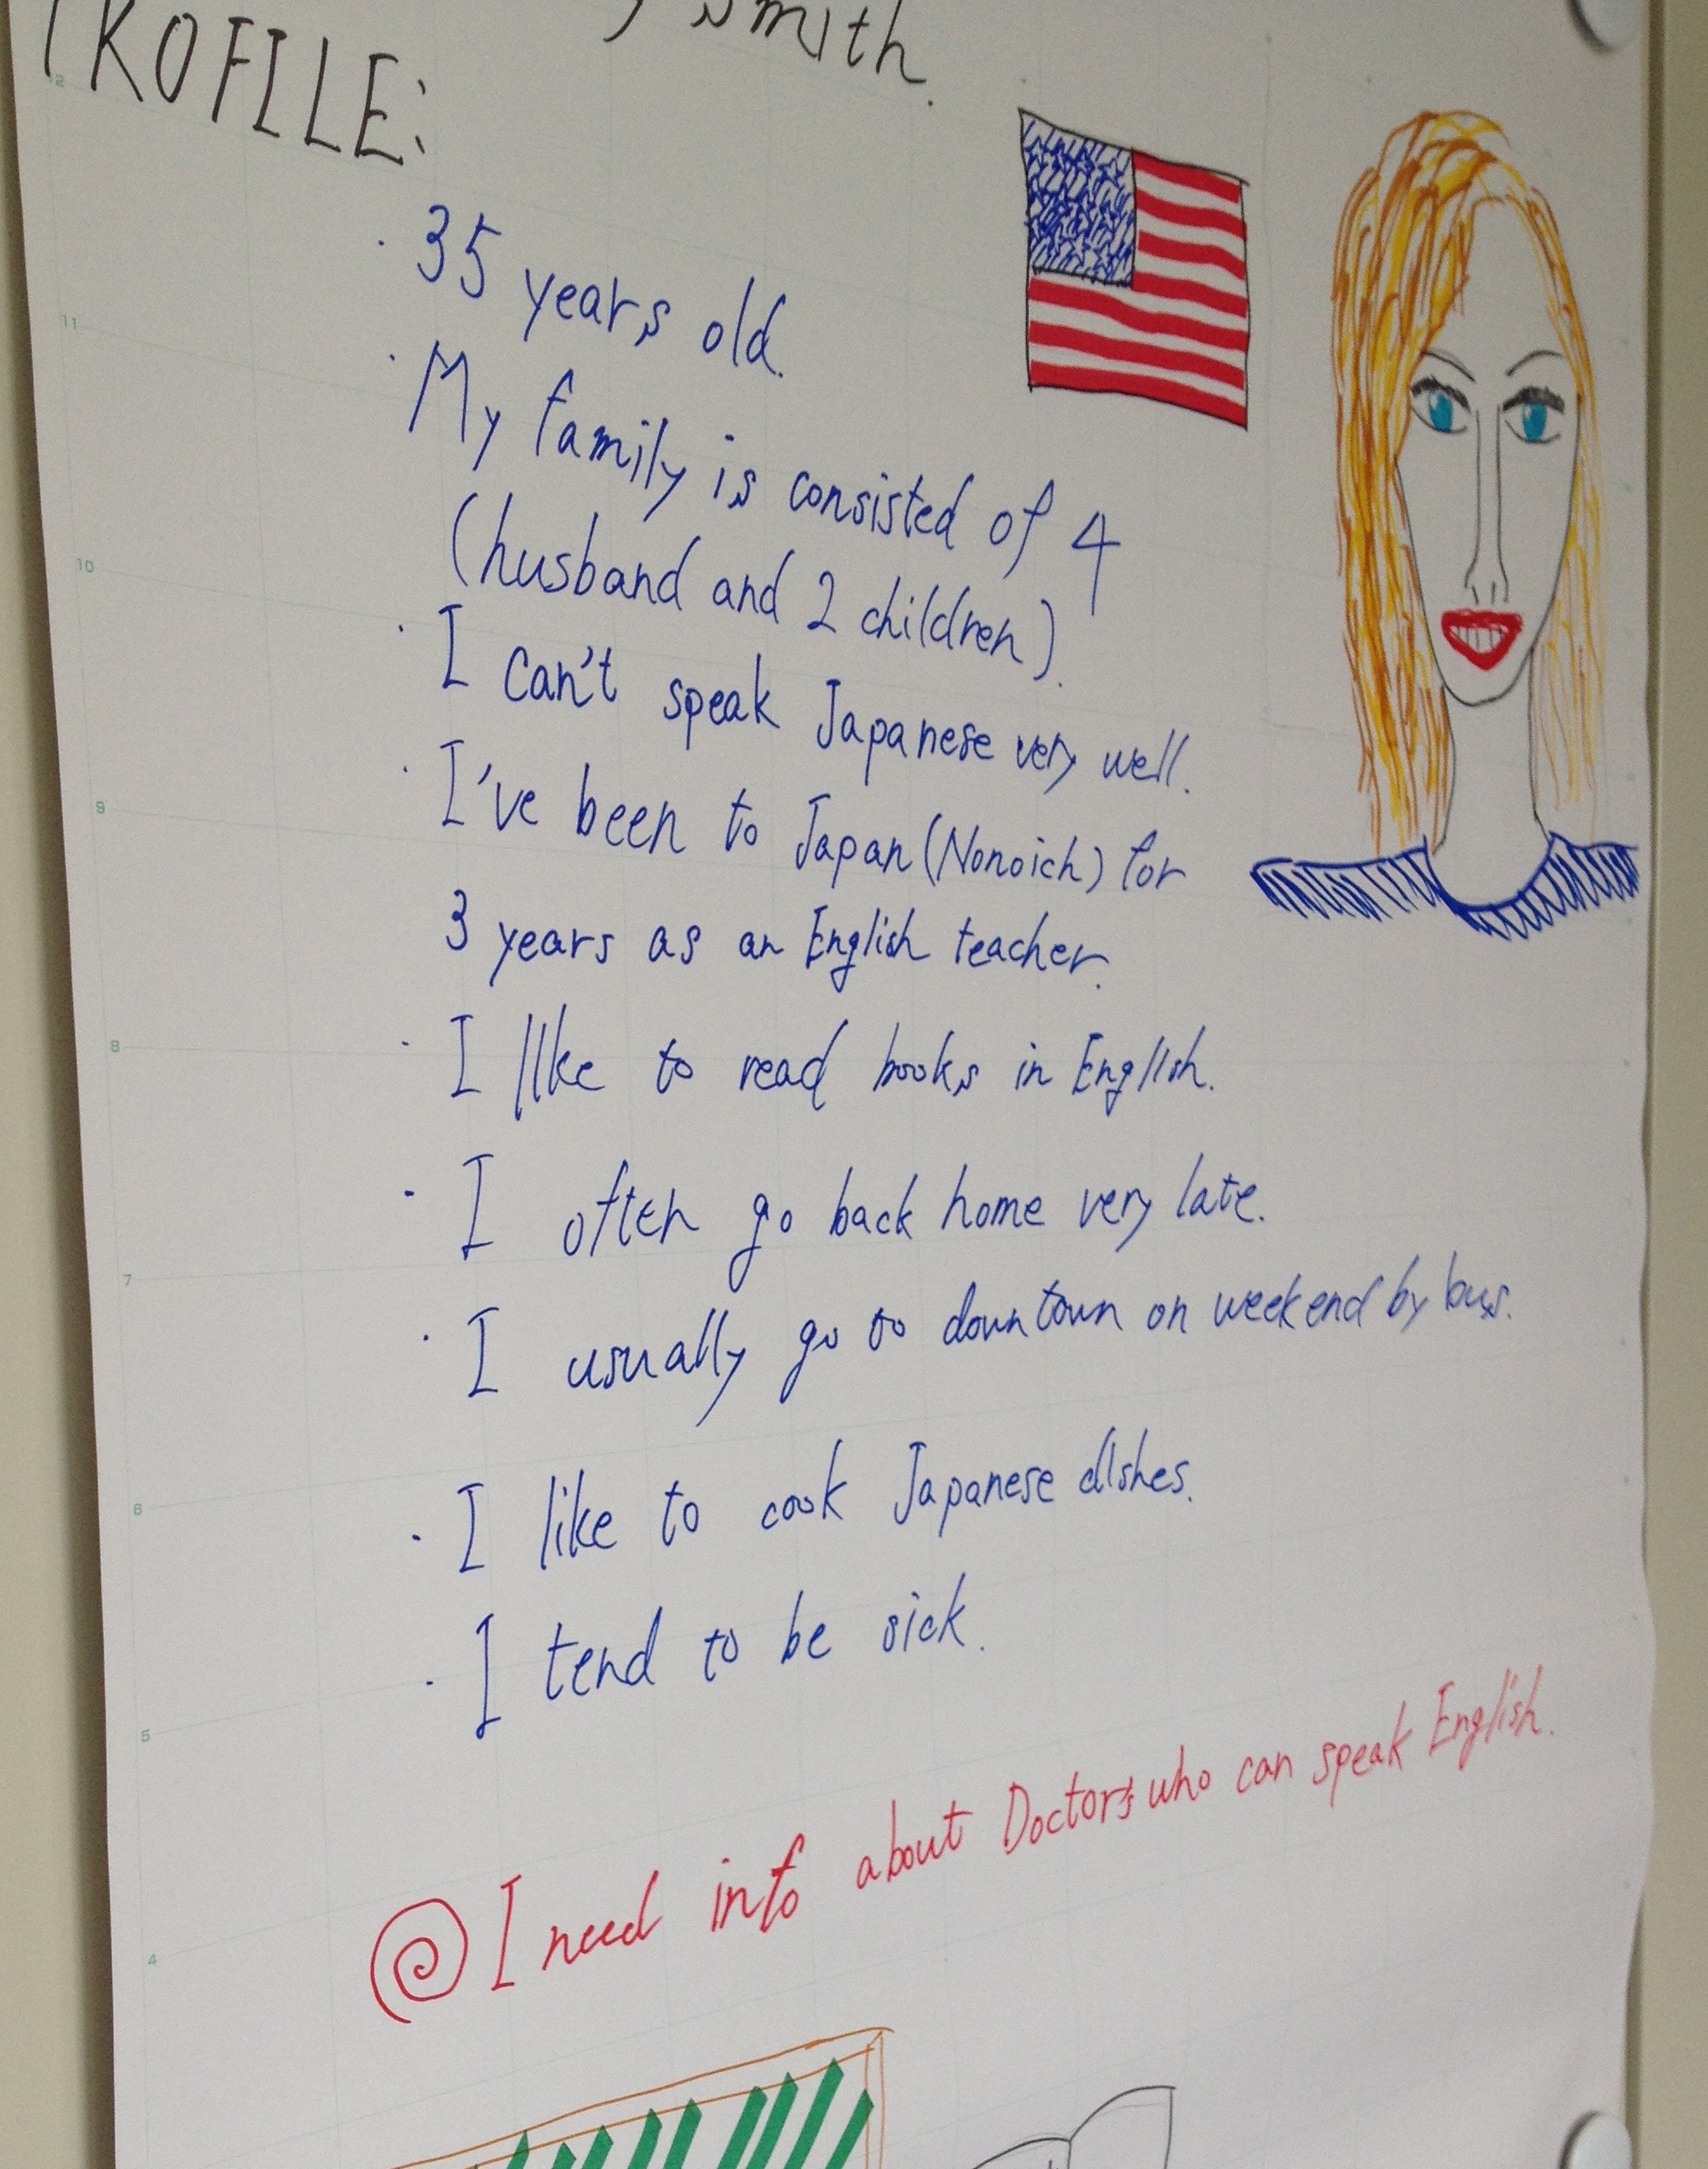 Smith.
PROFILE:
· 35 years old.
· My family is consisted of 4
(husband and 2 children).
· I can't speak Japanese very well.
· I've been to Japan (Nonoich) for
3 years as an English teacher.
· I like to read books in English.
· I often go back home very late.
· I usually go to downtown on weekend by bus.
· I like to cook Japanese dishes.
· I tend to be sick.
I need info about Doctors who can speak English.
12
11
10
9
8
7
6
5
4